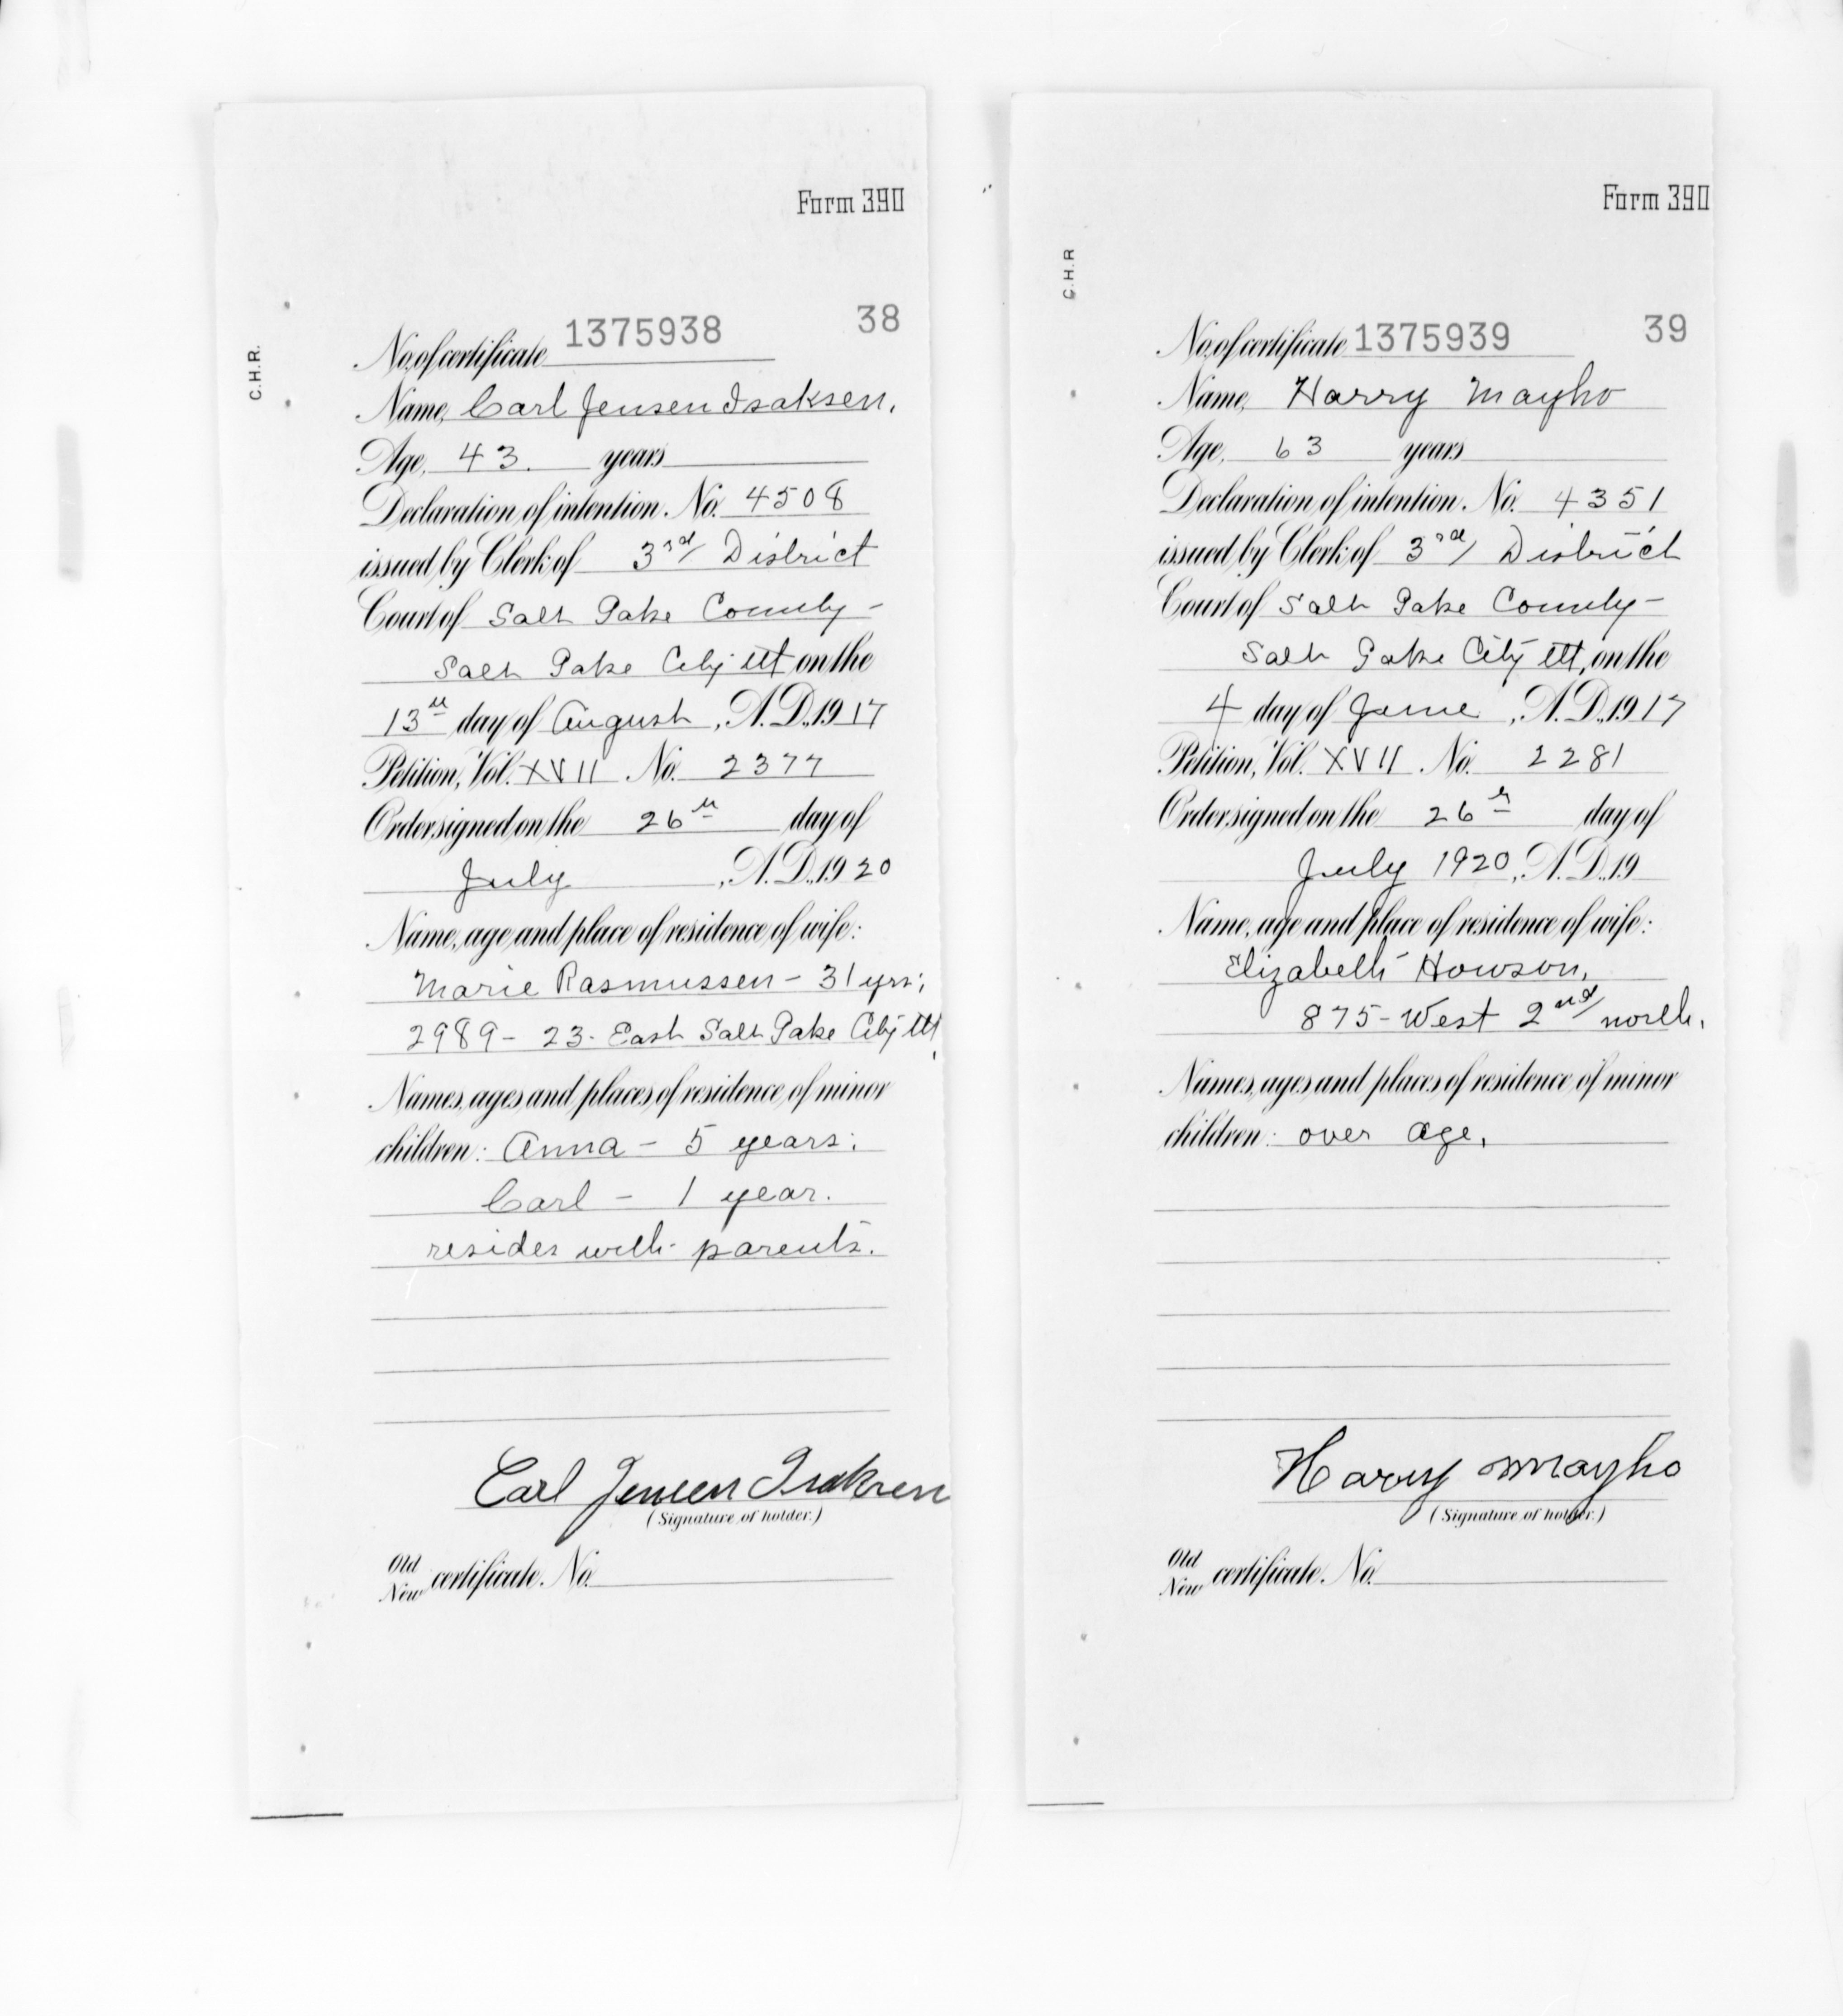 Form 390
C.H.R.
38
No. of certificate 1375938
Name, Carl Jensen Isaksen.
Age, 43. years
Declaration of intention. No. 4508
issued by Clerk of 3rd District
Court of Salt Lake County -
Salt Lake City Ut on the
13th day of August, A.D., 1917
Petition, Vol. XVII No. 2377
Order signed on the 26th day of
July, A.D., 1920
Name, age and place of residence of wife:
Marie Rasmussen - 31 yrs;
2989 - 23. East Salt Lake City Ut.
Names, ages and places of residence of minor
children: Anna - 5 years;
Carl - 1 year.
resides with parents.
Carl Jensen Isaksen
(Signature of holder.)
Old
New certificate. No.
Form 390
C.H.R
39
No. of certificate 1375939
Name, Harry Mayho
Age, 63 years
Declaration of intention. No. 4351
issued by Clerk of 3rd District
Court of Salt Lake County -
Salt Lake City Ut, on the
4 day of June, A.D., 1917
Petition, Vol. XVII No. 2281
Order signed on the 26th day of
July 1920, A.D., 19
Name, age and place of residence of wife:
Elizabeth Howson,
875 - West 2nd north.
Names, ages and places of residence of minor
children: over age.
Harry Mayho
(Signature of holder.)
Old
New certificate. No.